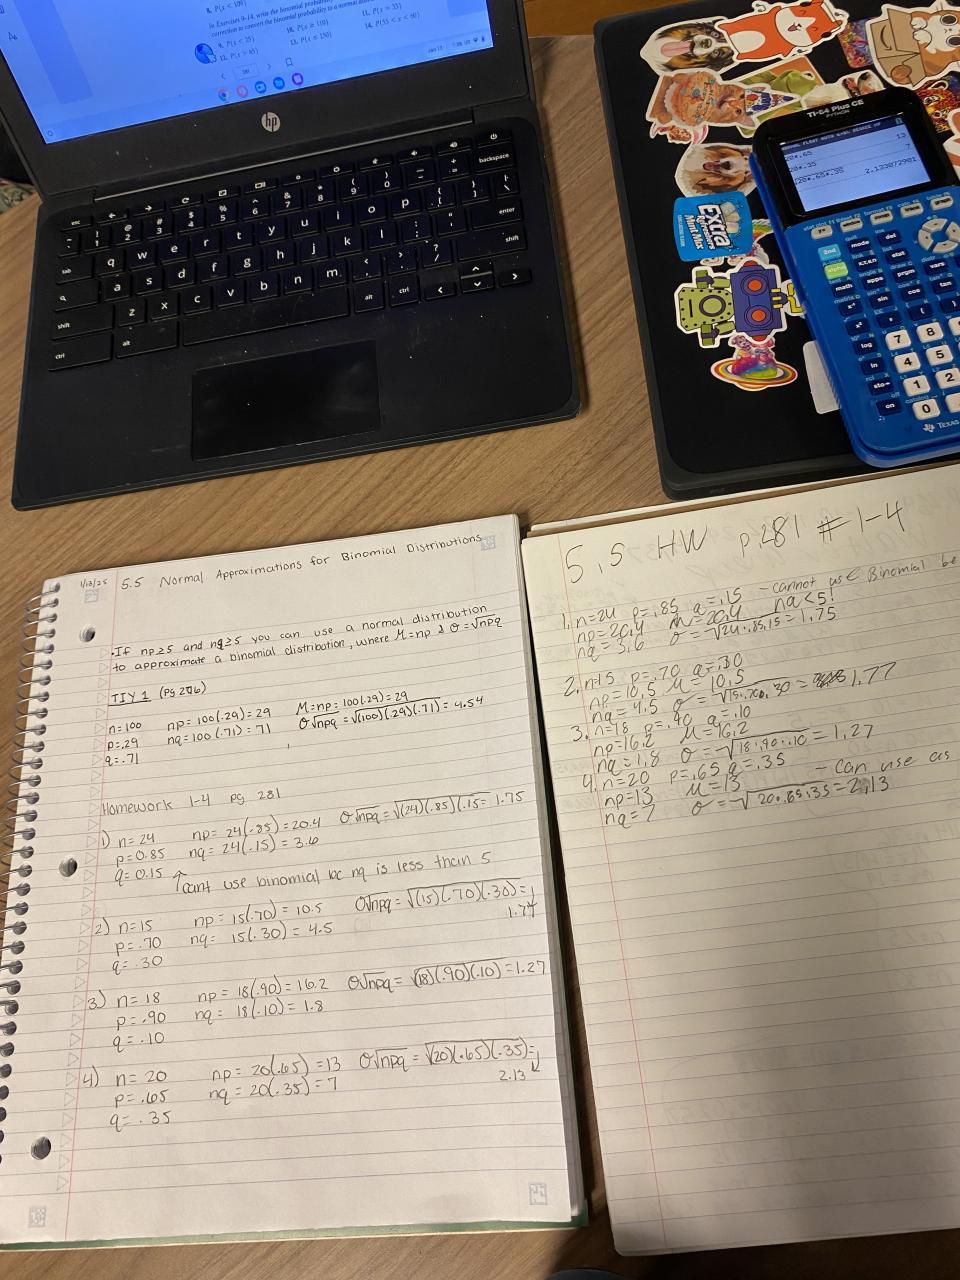 8. P(x < 109)
In Exercises 9-14, write the binomial probability
correction to convert the binomial probability to a normal
9. P(x < 25)
10. P(x ≥ 110)
11. P(x = 33)
12. P(x > 65)
13. P(x ≤ 150)
14. P(55 < x < 60)
hp
esc
backspace
tab
q w e r t y u i o p
enter
a s d f g h j k l
shift
z x c v b n m
shift
ctrl
alt
alt
ctrl
Extra
TI-84 Plus CE
PYTHON
NORMAL FLOAT AUTO a+bi DEGREE MP
20*.65
13
20*.35
7
√20*.65*.35
2.133072901
2nd
mode
del
alpha
X,T,θ,n
stat
math
apps
prgm
vars
sin
cos
tan
x²
log
7 8
ln
4 5
sto→
1 2
on
0
TEXAS
1/13/25
5.5 Normal Approximations for Binomial Distributions
• If np≥5 and nq≥5 you can use a normal distribution
to approximate a binomial distribution, where M=np & σ=√npq
TIY 1 (pg 276)
n=100 np = 100(.29) = 29 M=np=100(.29)=29
p=.29 nq=100(.71)=71 σ√npq=√(100)(.29)(.71)=4.54
q=.71
Homework 1-4 pg 281
1) n=24 np = 24(.85)=20.4 σ√npq=√(24)(.85)(.15= 1.75
p=0.85 nq=24(.15)=3.6
q=0.15 ↑cant use binomial bc nq is less than 5
2) n=15 np = 15(.70)=10.5 σ√npq=√(15)(.70)(.30)=
p=.70 nq= 15(.30)=4.5 1.77
q=.30
3) n=18 np = 18(.90)=16.2 σ√npq = √(18)(.90)(.10)=1.27
p=.90 nq = 18(.10)=1.8
q=.10
4) n=20 np= 20(.65)=13 σ√npq = √(20)(.65)(.35)=
p=.65 nq = 20(.35)=7 2.13
q=.35
5.5 HW p.281 #1-4
1. n=24 p=.85 q=.15 - cannot use Binomial be
np=20,4 M=20,4 nq<5!
nq=3,6 σ=√24·.85·.15=1.75
2. n=15 p=.70 q=.30
np=10,5 M=10,5
nq=4,5 σ=√15·.70·.30= 1,77
3. n=18 p=.90 q=.10
np=16,2 M=16,2
nq=1,8 σ=√18·.90·.10=1,27
4. n=20 p=.65 q=.35 - Can use as
np=13 M=13
nq=7 σ=√20·.65·.35=2,13